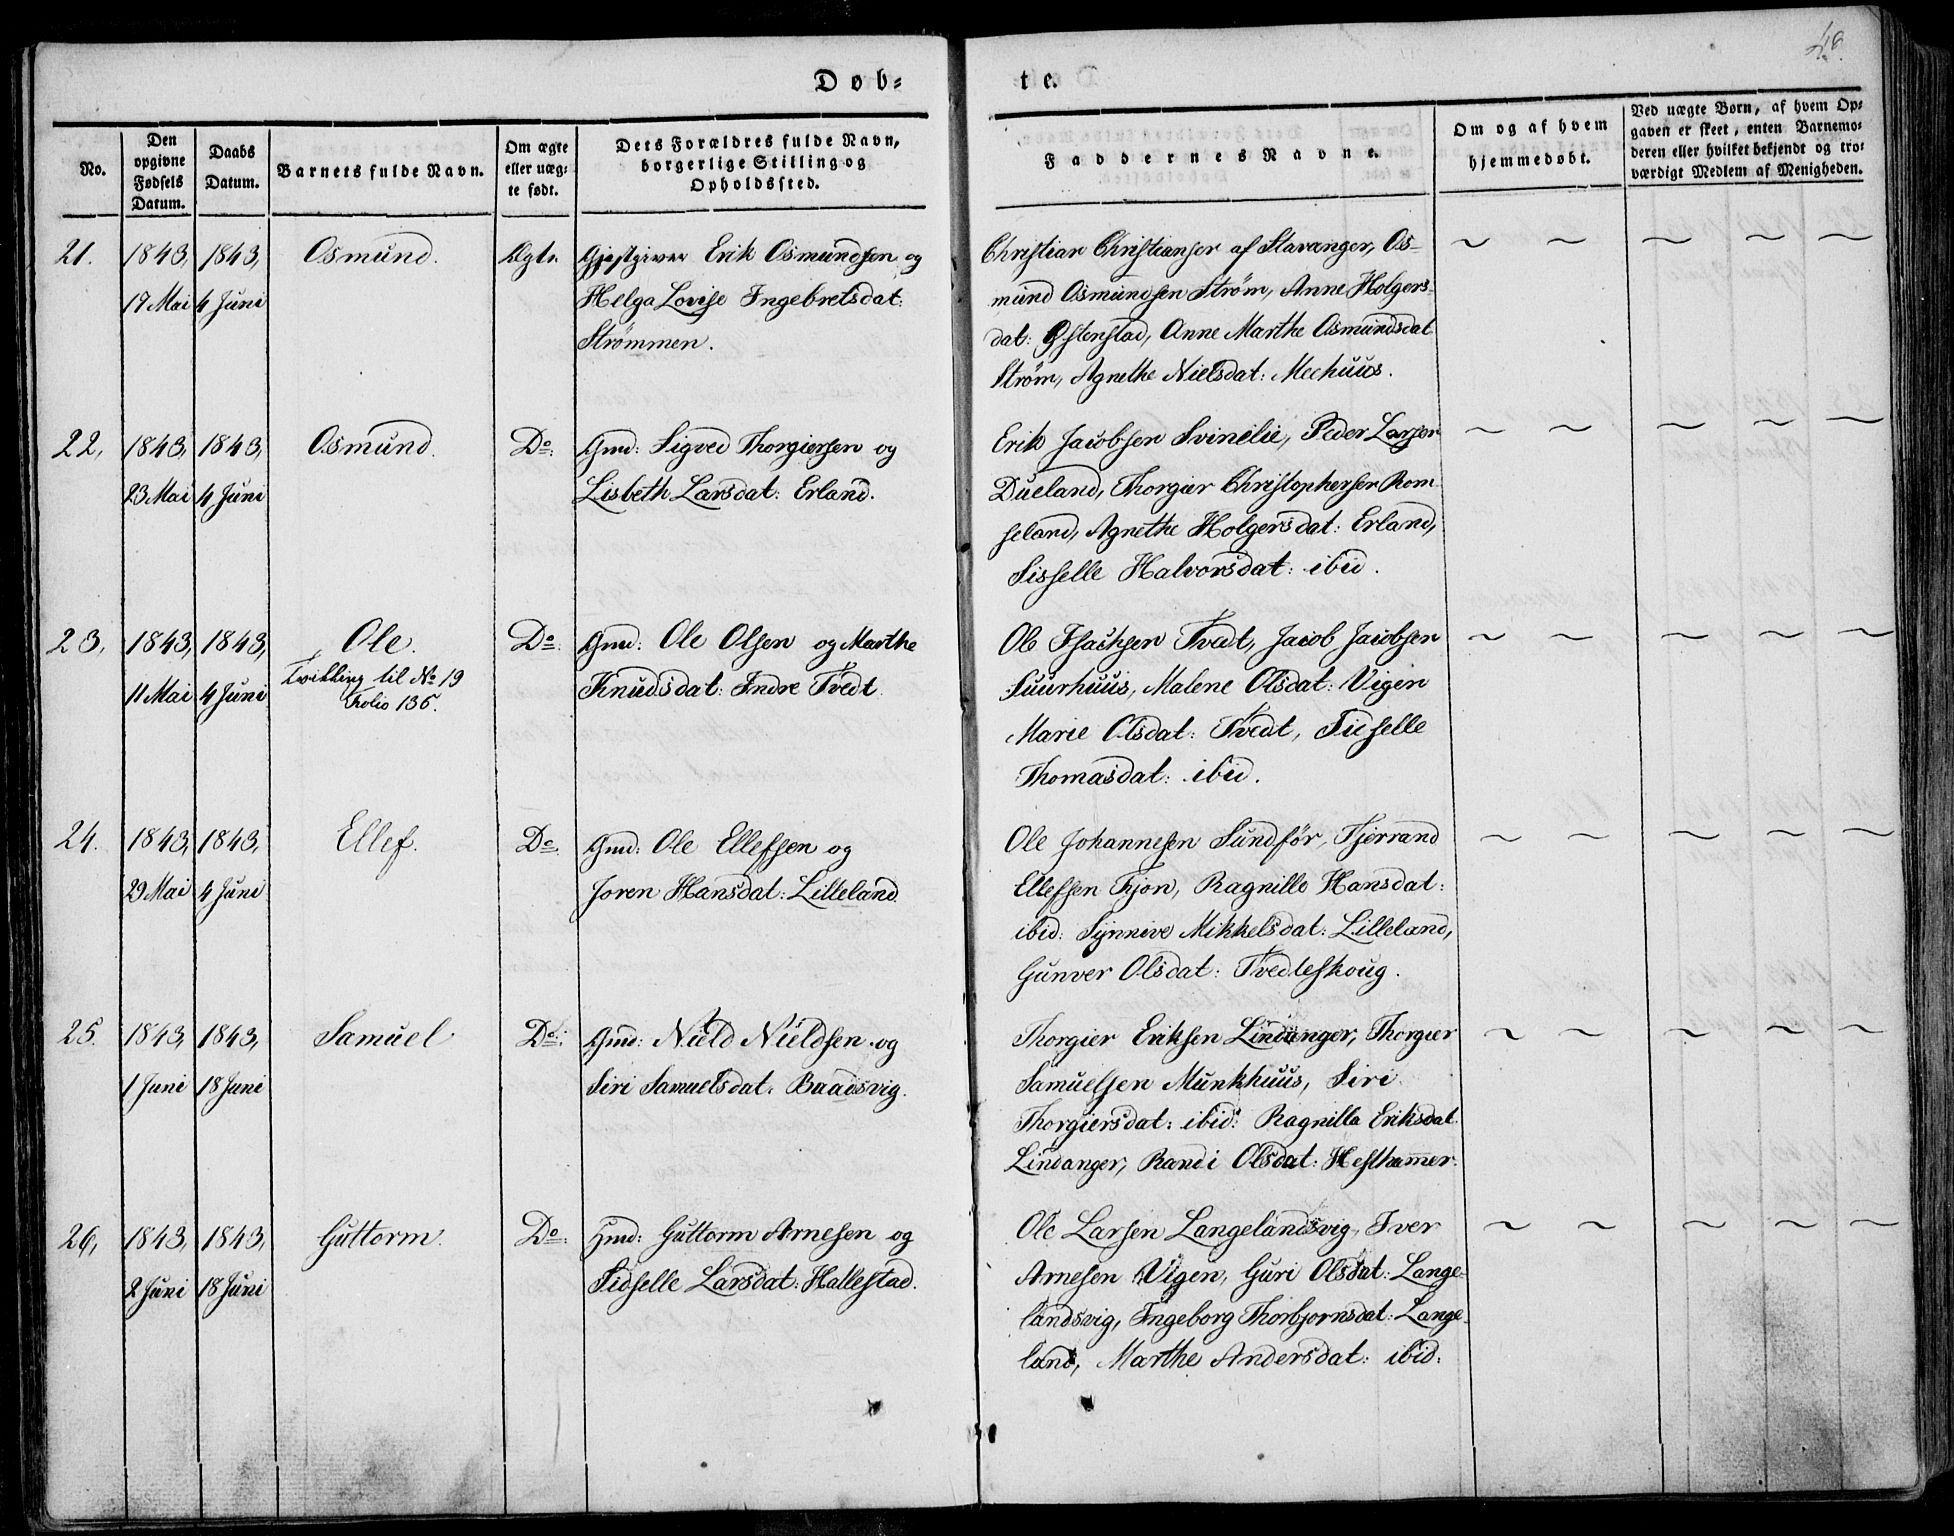 48.
Døb-
te.
No.
Den opgivne Fødsels Datum.
Daabs Datum.
Barnets fulde Navn.
Om ægte eller uæg- te født.
Dets Forældres fulde Navn, borgerlige Stilling og Opholdssted.
Faddernes Navne.
Om og af hvem hjemmedøbt.
Ved uægte Børn, af hvem Op- gaven er skeet, enten Barnemo- deren eller hvilket bekjendt og tro- værdigt Medlem af Menigheden.
21. 1843, 1843, Osmund. Ægte. Gjestgiver Erik Osmundsen og
17 Mai 4 Juni Helga Lovise Ingebretsdat:
Strømmen.
Christian Christiansen af Stavanger, Os-
mund Osmundsen Strøm, Anne Holgers-
dat: Østenstad, Anne Marthe Osmundsdat
Strøm, Agnethe Nielsdat: Meehuus.
22, 1843, 1843, Osmund. Do. Gmd: Sigved Thorgiersen og
23 Mai 4 Juni Lisbeth Larsdat: Erland.
Erik Jacobsen Svinelie, Peder Larsen
Dueland, Thorgier Christophersen Rom-
seland, Agnethe Holgersdat: Erland,
Sisselle Halvorsdat: ibid.
23, 1843, 1843, Ole. Do. Gmd: Ole Olsen og Marthe
11 Mai 4 Juni Tvilling til No 19 Knudsdat: Indre Tvedt.
Folio 136.
Ole Isachsen Tvedt, Jacob Jacobsen
Suurhuus, Malene Olsdat: Vigen
Marie Olsdat: Tvedt, Sisselle
Thomasdat: ibid.
24. 1843, 1843, Ellef. Do. Gmd: Ole Ellefsen og
29 Mai 4 Juni Joren Hansdat: Lilleland.
Ole Johannesen Sundfør, Tjerrand
Ellefsen Fjon, Ragnille Hansdat:
ibid: Synnive Mikkelsdat: Lilleland,
Gunver Olsdat: Tvedteskoug.
25. 1843, 1843, Samuel Do. Gmd: Nield Nieldsen og
1 Juni 18 Juni Siri Samuelsdat: Baadsvig.
Thorgier Eriksen Lindanger, Thorgier
Samuelsen Munkhuus, Siri
Thorgiersdat: ibid: Ragnilla Eriksdat
Lindanger, Randi Olsdat: Hesthammer.
26, 1843, 1843, Guttorm. Do. Gmd: Guttorm Arnesen og
2 Juni 18 Juni Sidselle Larsdat: Hallestad.
Ole Larsen Langelandsvig, Iver
Arnesen Vigen, Guri Olsdat: Lange-
landsvig, Ingeborg Thorbjornsdat: Lange-
land, Marthe Andersdat: ibid: